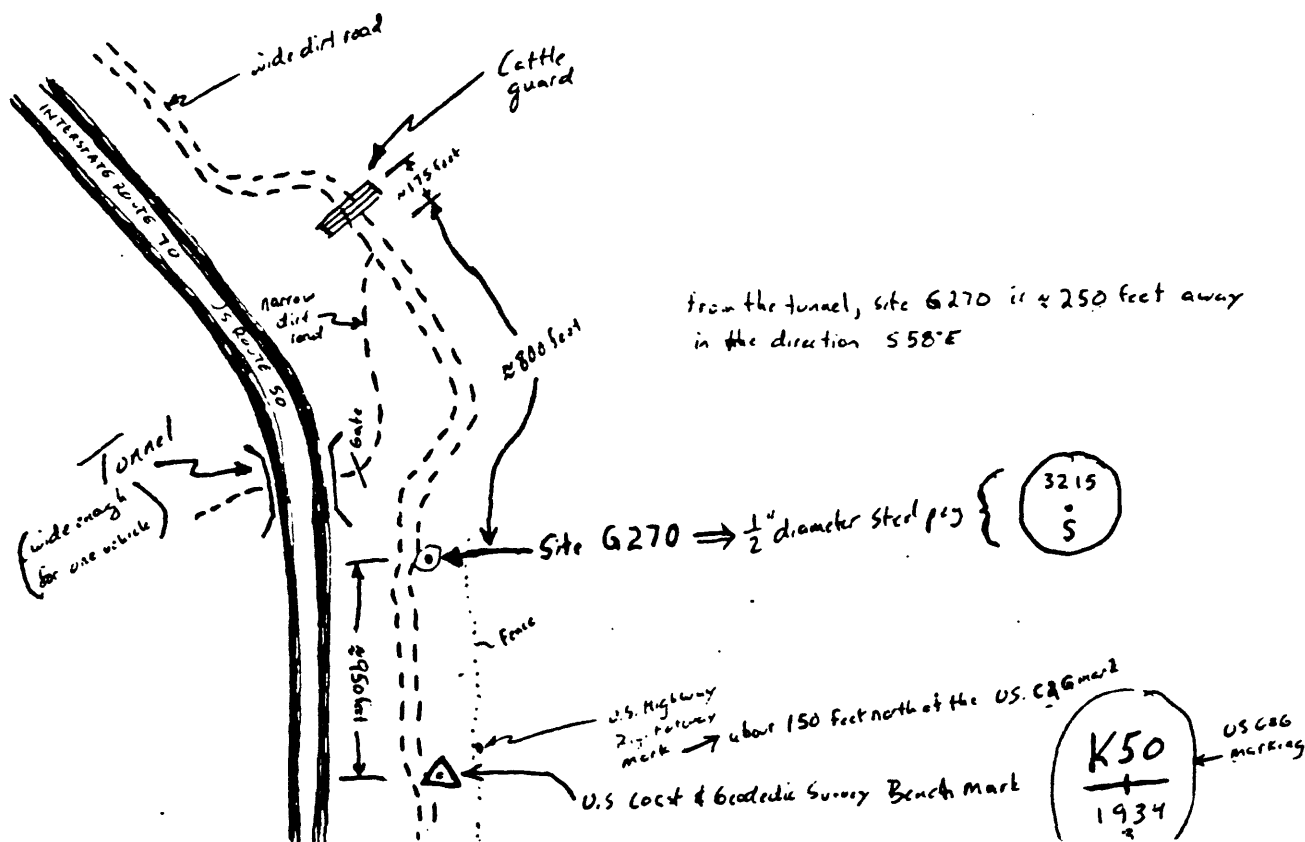 wide dirt road
Cattle
guard
≈175 feet
INTERSTATE ROUTE 70
US ROUTE 50
narrow
dirt
road
from the tunnel, site G270 is ≈ 250 feet away
in the direction S58°E
≈800 feet
Gate
Tunnel
(wide enough
for one vehicle)
Site G270 ⇒ 1/2" diameter steel peg {
3215
S
≈950 feet
Fence
U.S. Highway
mark → about 150 feet north of the US. C&G mark
U.S Coast & Geodetic Survey Bench Mark
K50
1934
US C&G
marking